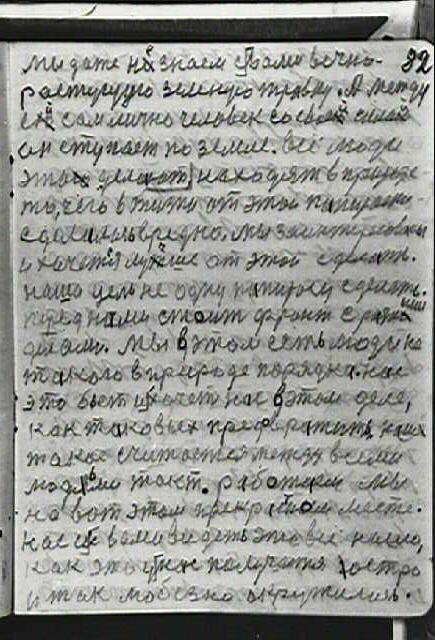 32
мы даже не знаем с вами вечно-
растущую зеленую травку. А между
ей сам лично человек со своей силой
он ступает по земле. Все люди
это делают находят в природе
то, чего в жизни от этой папироски
сделалось вредно. Мы заинтересованы
и хочется лучше от этой сделать.
наша цель не одну папироску сделать.
перед нами стоит фронт с разными
делами. Мы в этом есть люди не
такого в природе порядка. нас
это бьет и хочет нас в этом деле,
как таковых прекратить, наше
такое считается между всеми
людьми такт. работаем мы
на вот этом прекрасном месте.
нас с вами видеть это все наше,
как это у нас получается остро
и так любезно окружились.